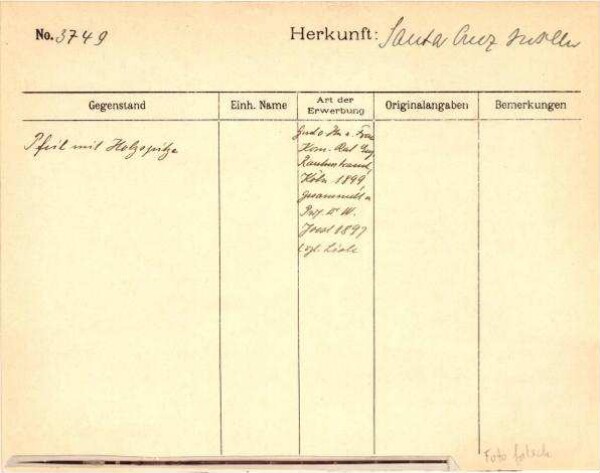 No. 3749
Herkunft: Santa Cruz Inseln
Gegenstand
Einh. Name
Art der Erwerbung
Originalangaben
Bemerkungen
Pfeil mit Holzspitze
Kom. Rat Eug.
Rautenstrauch,
Köln 1899
gesammelt v.
Prof. Dr W.
Joest 1897
Foto falsch